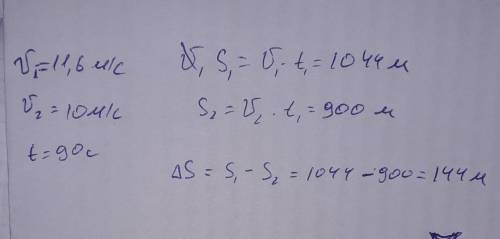 υ₁=11,6 м/с
υ₂=10м/с
t=90с
S₁ = υ₁·t₁=1044м
S₂=υ₂·t₁=900 м
ΔS = S₁-S₂ = 1044-900=144м